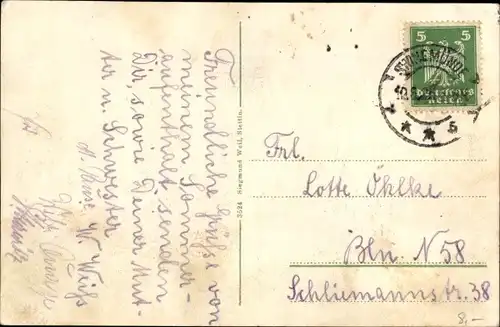 Freundliche Grüße von
meinem Sommer-
aufenthalt senden
Dir, sowie Deiner Mut-
ter u. Schwester
W. Weiß
3524 Siegmund Weil, Stettin.
5 5
SWINEMÜNDE
Deutsches
Reich
* * 5
Frl.
Lotte Öhlke
Bln. N 58
Schliemannstr. 38
8,-